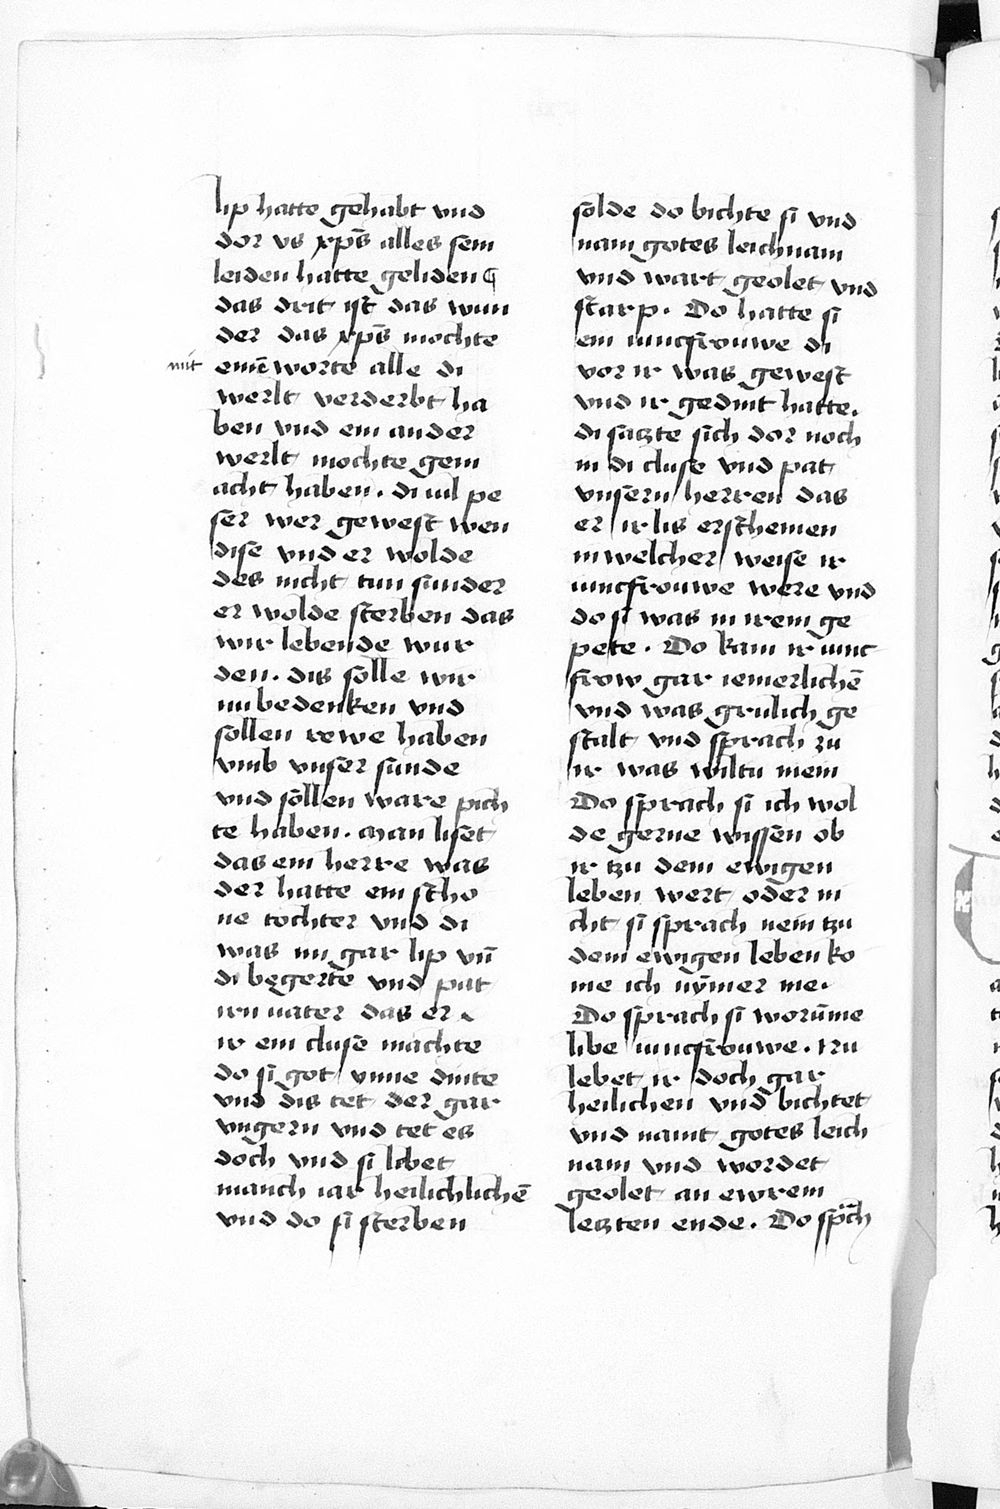 lip hatte gehabt vnd
dor vs xp̄s alles sein
leiden hatte geliden ¶
das drit ist das wun
der das xp̄s mochte
mit einē worte alle di
werlt verderbt ha
ben vnd ein ander
werlt mochte gem
acht haben. di uil pe
ser wer gewest wen
dise vnd er wolde
des nicht tun sunder
er wolde sterben das
wir lebende wur
den. dis solle wir
nu bedenken vnd
sollen rewe haben
vmb vnser sunde
vnd sollen ware pich
te haben. man liset
das ein herre was
der hatte ein scho
ne tochter vnd di
was im gar lip vn̄
di begerte vnd pat
irn uater das er
ir ein cluse machte
do si got ynne dinte
vnd dis tet der gar
vngern vnd tet es
doch vnd si lebet
manch iar heilichlichē
vnd do si sterben
solde do bichte si vnd
nam gotes leichnam
vnd wart geolet vnd
starp. Do hatte si
ein iuncfrouwe di
vor ir was gewest
vnd ir gedint hatte.
di saczte sich dor noch
in di cluse vnd pat
vnsern herren das
er ir lis erscheinen
in welcher weise ir
iuncfrouwe were vnd
do si was in irem ge
pete. Do kam ir iunc
frow gar iemerlichē
vnd was grulich ge
stalt vnd sprach zu
ir was wiltu mein
Do sprach si ich wol
de gerne wissen ob
ir tzu dem ewigen
leben wert oder ni
cht si sprach nein tzu
dem ewigen leben ko
me ich nȳmer me.
Do sprach si worūme
libe iuncfrouwe. Nu
lebet ir doch gar
heilichen vnd bichtet
vnd namt gotes leich
nam vnd wordet
geolet an ewrem
letzten ende. Do sp̄ch